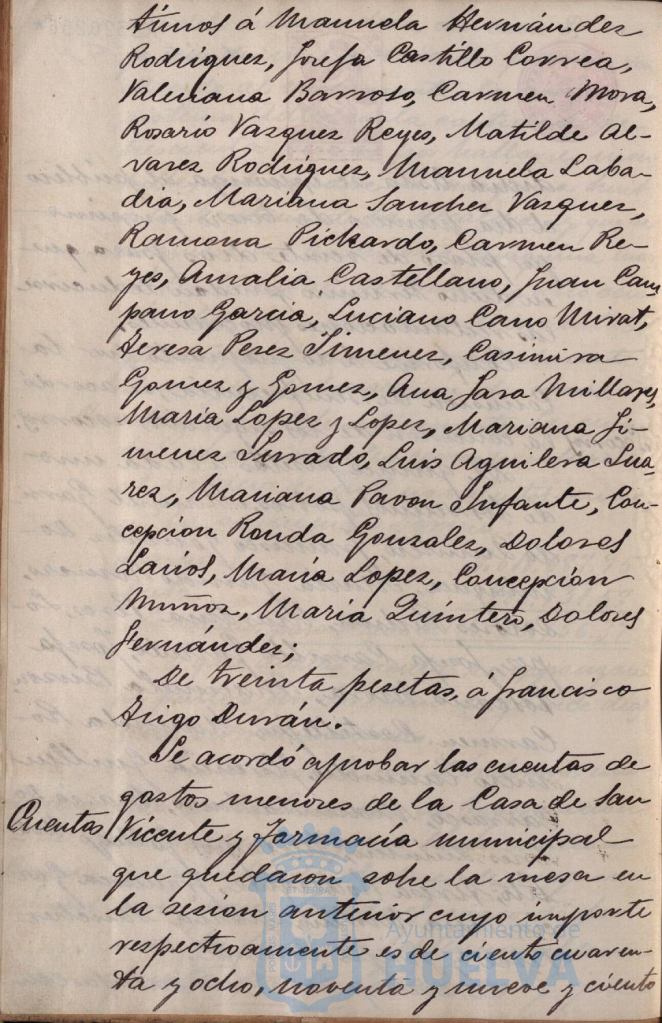 timos á Manuela Hernández
Rodriguez, Josefa Castillo Correa,
Valeriana Barroso, Carmen Mora,
Rosario Vazquez Reyes, Matilde Al-
varez Rodriguez, Manuela Laba-
dia, Mariana Sanchez Vazquez,
Ramona Pickardo, Carmen Re-
yes, Amalia Castellano, Juan Cam
pano Garcia, Luciano Cano Mirat,
Teresa Perez Jimenez, Casimira
Gomez y Gomez, Ana Jara Millares,
Maria Lopez y Lopez, Mariana Ji-
menez Jurado, Luis Aguilera Sua-
rez, Mariana Pavon Infante, Con-
cepcion Ronda Gonzalez, Dolores
Larios, Maria Lopez, Concepción
Muñoz, Maria Quintero, Dolores
Fernández;
De treinta pesetas, á Francisco
Trigo Durán.
Se acordó aprobar las cuentas de
gastos menores de la Casa de San
Cuentas
Vicente y Farmacia municipal
que quedaron sobre la mesa en
la sesion anterior cuyo importe
respectivamente es de ciento cuaren-
ta y ocho, noventa y nueve y ciento
Ayuntamiento de
HUELVA